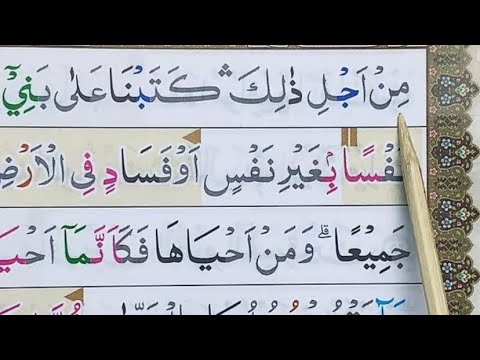 مِنْ اَجْلِ ذٰلِكَ ۛ كَتَبْنَا عَلٰى بَنِيْٓ
نَفْسًا بِۢغَيْرِ نَفْسٍ اَوْ فَسَادٍ فِي الْاَرْضِ
جَمِيْعًا ۗ وَمَنْ اَحْيَاهَا فَكَاَنَّمَآ